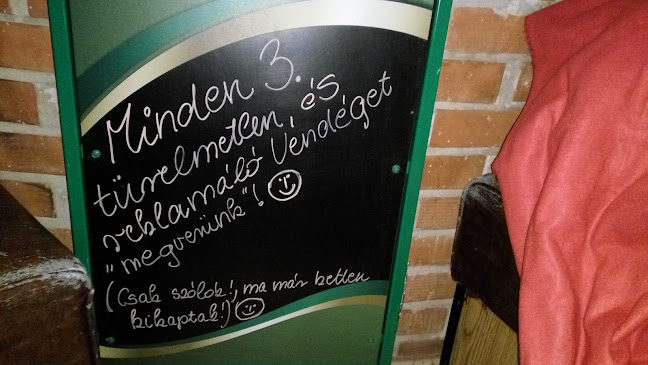 Minden 3.
türelmetlen, és
reklamáló Vendéget
"megverünk"!
(Csak szólok!, ma már ketten
kikaptak!)